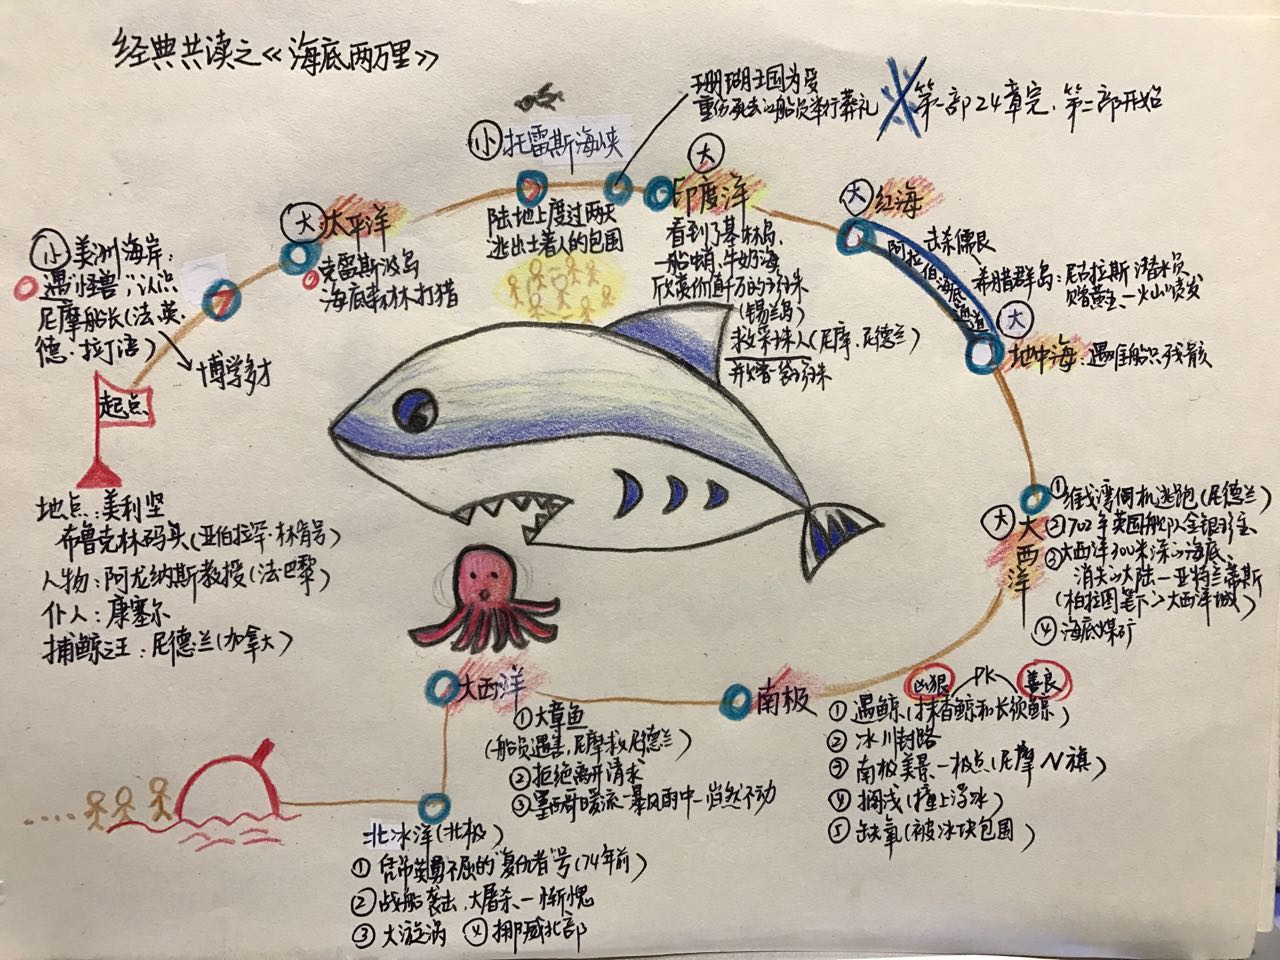 经典共读之《海底两万里》
小 美洲海岸:
遇"怪兽",认识
尼摩船长(法、英、
德、拉丁语)
博学多才
起点
地点:美利坚
布鲁克林码头(亚伯拉罕·林肯号)
人物:阿龙纳斯教授(法巴黎)
仆人:康塞尔
捕鲸之王:尼德兰(加拿大)
大 太平洋
克雷斯波岛
海底森林打猎
小 托雷斯海峡
陆地上度过两天
逃出土著人的包围
珊瑚王国为受
重伤死去的船员举行葬礼
第一部24章完,第二部开始
大
印度洋
看到了基林岛
一船蛸、牛奶海
欣赏价值千万的珍珠
(锡兰岛)
救采珠人(尼摩、尼德兰)
并赠一袋珍珠
大 红海
击杀儒艮
阿拉伯海底通道
希腊群岛:尼古拉斯潜水员
赠黄金、火山喷发
大
地中海:遇难船只残骸
大
大西洋
① 维哥湾伺机逃跑(尼德兰)
② 1702年英国舰队金银珍宝
③ 大西洋300米深的海底、
消失的大陆—亚特兰蒂斯
(柏拉图笔下的大西洋城)
④ 海底煤矿
南极
凶狠 PK 善良
① 遇鲸(抹香鲸和长须鲸)
② 冰川封路
③ 南极美景—极点(尼摩N旗)
④ 搁浅(撞上浮冰)
⑤ 缺氧(被冰块包围)
大西洋
① 大章鱼
(船员遇害,尼摩救尼德兰)
② 拒绝离开请求
③ 墨西哥暖流—暴风雨中—岿然不动
北冰洋(北极)
① 凭吊英勇不屈的"复仇者"号(74年前)
② 战船袭击、大屠杀—惭愧
③ 大漩涡 ④ 挪威北部